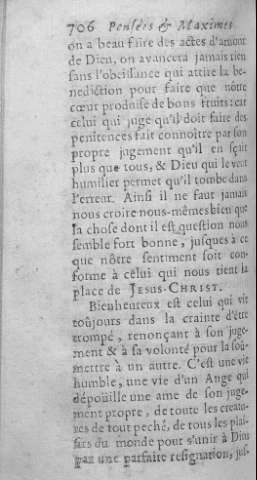 706 Pensées & Maximes
on a beau faire des actes d'amour
de Dieu, on avancera jamais rien
sans l'obeïssance qui attire la be-
nediction pour faire que nôtre
cœur produise de bons fruits: car
celui qui juge qu'il doit faire des
penitences fait connoitre par son
propre jugement qu'il en sçait
plus que tous, & Dieu qui le veut
humilier permet qu'il tombe dans
l'erreur. Ainsi il ne faut jamais
nous croire nous-mêmes bien que
la chose dont il est question nous
semble fort bonne, jusques à ce
que nôtre sentiment soit con-
forme à celui qui nous tient la
place de JESUS-CHRIST.
Bieuheureux est celui qui vit
toûjours dans la crainte d'être
trompé, renonçant à son juge-
ment & à sa volonté pour la soû-
mettre à un autre. C'est une vie
humble, une vie d'un Ange qui
dépoüille une ame de son juge-
ment propre, de toute les creatu-
res de tout peché, de tous les plai-
sirs du monde pour s'unir à Dieu
par une parfaite resignation, jus-